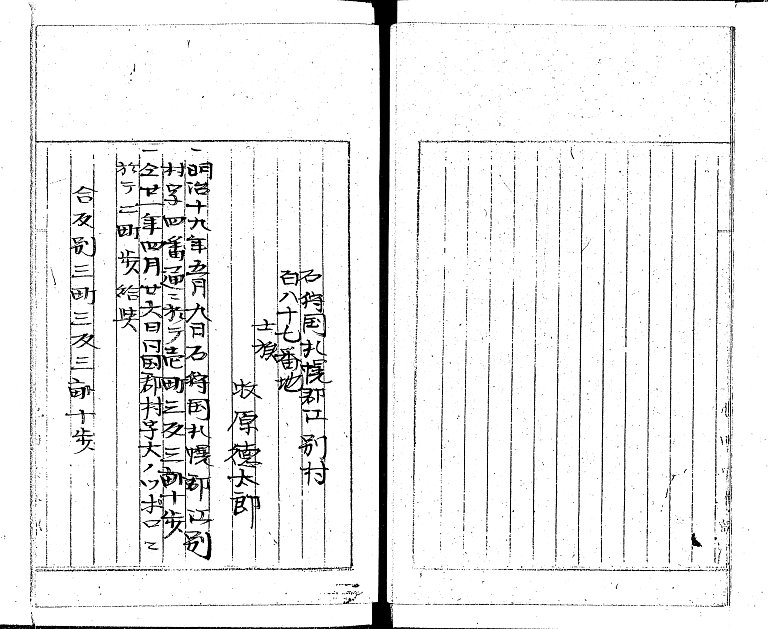 石狩国札幌郡江別村
百八十七番地
士族
牧原德太郎
一明治十九年五月九日石狩国札幌郡江別
村字四番通ニ於テ壱町三反三畝十歩
一仝廿一年四月廿六日同国郡村字大ノツポロニ
於テ二町歩給與
合反別三町三反三畝十歩